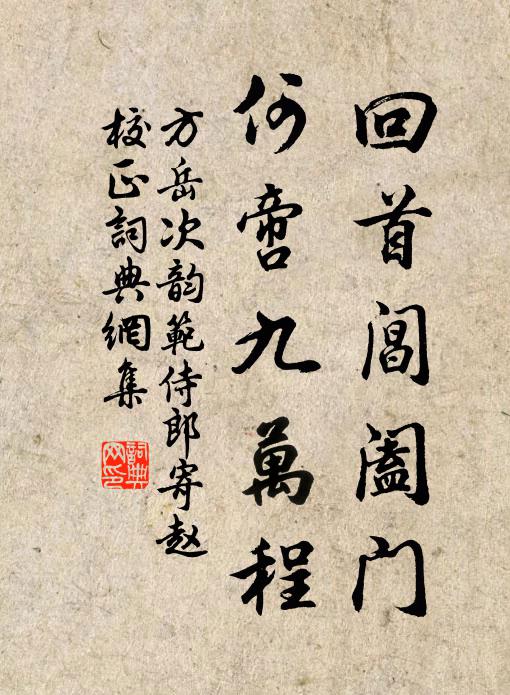 回首閶闔门
何啻九萬程
方岳次韵範侍郎寄赵
校正詞典網集
詞典
网印